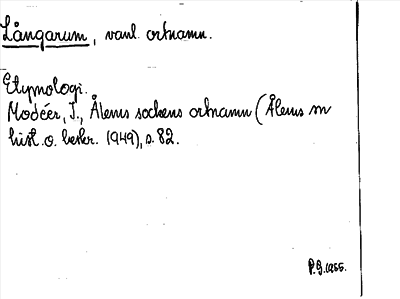 Långarum, vanl. ortnamn.
Etymologi.
Modéer, I., Ålems sockens ortnamn (Ålems sn
hist. o. beskr. (1949), s. 82.
P.G. 1955.